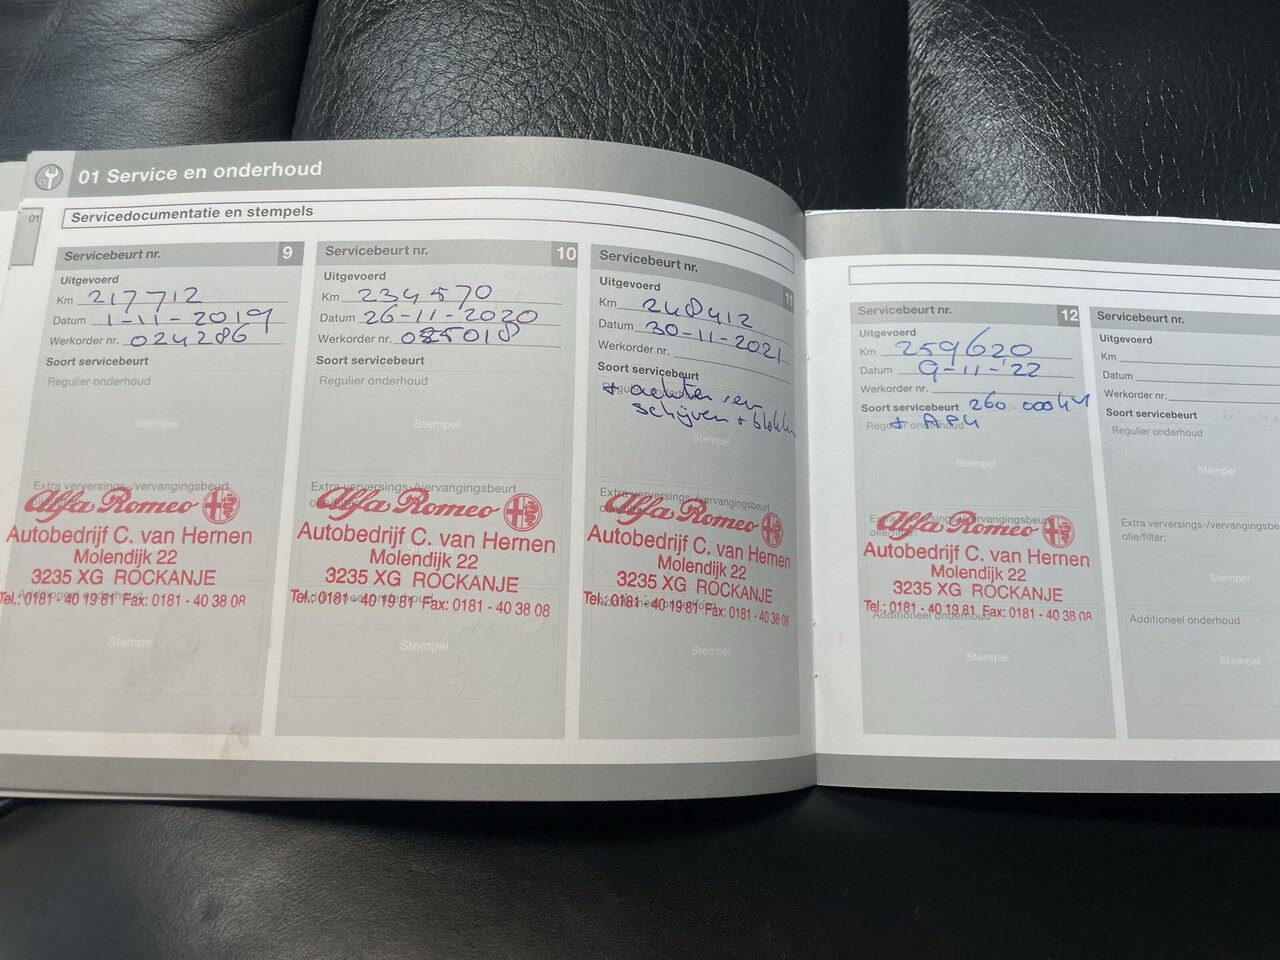 01 Service en onderhoud
01
Servicedocumentatie en stempels
Servicebeurt nr. 9
Uitgevoerd
Km 217712
Datum 1-11-2019
Werkorder nr. 024286
Soort servicebeurt
Regulier onderhoud
Stempel
Extra verversings-/vervangingsbeurt
Alfa Romeo
Autobedrijf C. van Hernen
Molendijk 22
3235 XG ROCKANJE
Tel.: 0181 - 40 19 81 Fax: 0181 - 40 38 08
Additioneel onderhoud
Stempel
Servicebeurt nr. 10
Uitgevoerd
Km 234570
Datum 26-11-2020
Werkorder nr. 025018
Soort servicebeurt
Regulier onderhoud
Stempel
Extra verversings-/vervangingsbeurt
Alfa Romeo
Autobedrijf C. van Hernen
Molendijk 22
3235 XG ROCKANJE
Tel.: 0181 - 40 19 81 Fax: 0181 - 40 38 08
Additioneel onderhoud
Stempel
Servicebeurt nr. 11
Uitgevoerd
Km 248412
Datum 30-11-2021
Werkorder nr.
Soort servicebeurt
Regulier onderhoud
+ achter rem
schijven + blokken
Stempel
Extra verversings-/vervangingsbeurt
Alfa Romeo
Autobedrijf C. van Hernen
Molendijk 22
3235 XG ROCKANJE
Tel.: 0181 - 40 19 81 Fax: 0181 - 40 38 08
Additioneel onderhoud
Stempel
Servicebeurt nr. 12
Uitgevoerd
Km 259620
Datum 9-11-'22
Werkorder nr.
Soort servicebeurt 260.000km
Regulier onderhoud
+ APK
Stempel
Extra verversings-/vervangingsbeurt
olie/filter:
Alfa Romeo
Autobedrijf C. van Hernen
Molendijk 22
3235 XG ROCKANJE
Tel.: 0181 - 40 19 81 Fax: 0181 - 40 38 08
Additioneel onderhoud
Stempel
Servicebeurt nr.
Uitgevoerd
Km
Datum
Werkorder nr.
Soort servicebeurt
Regulier onderhoud
Stempel
Extra verversings-/vervangingsbe
olie/filter:
Stempel
Additioneel onderhoud
Stempel